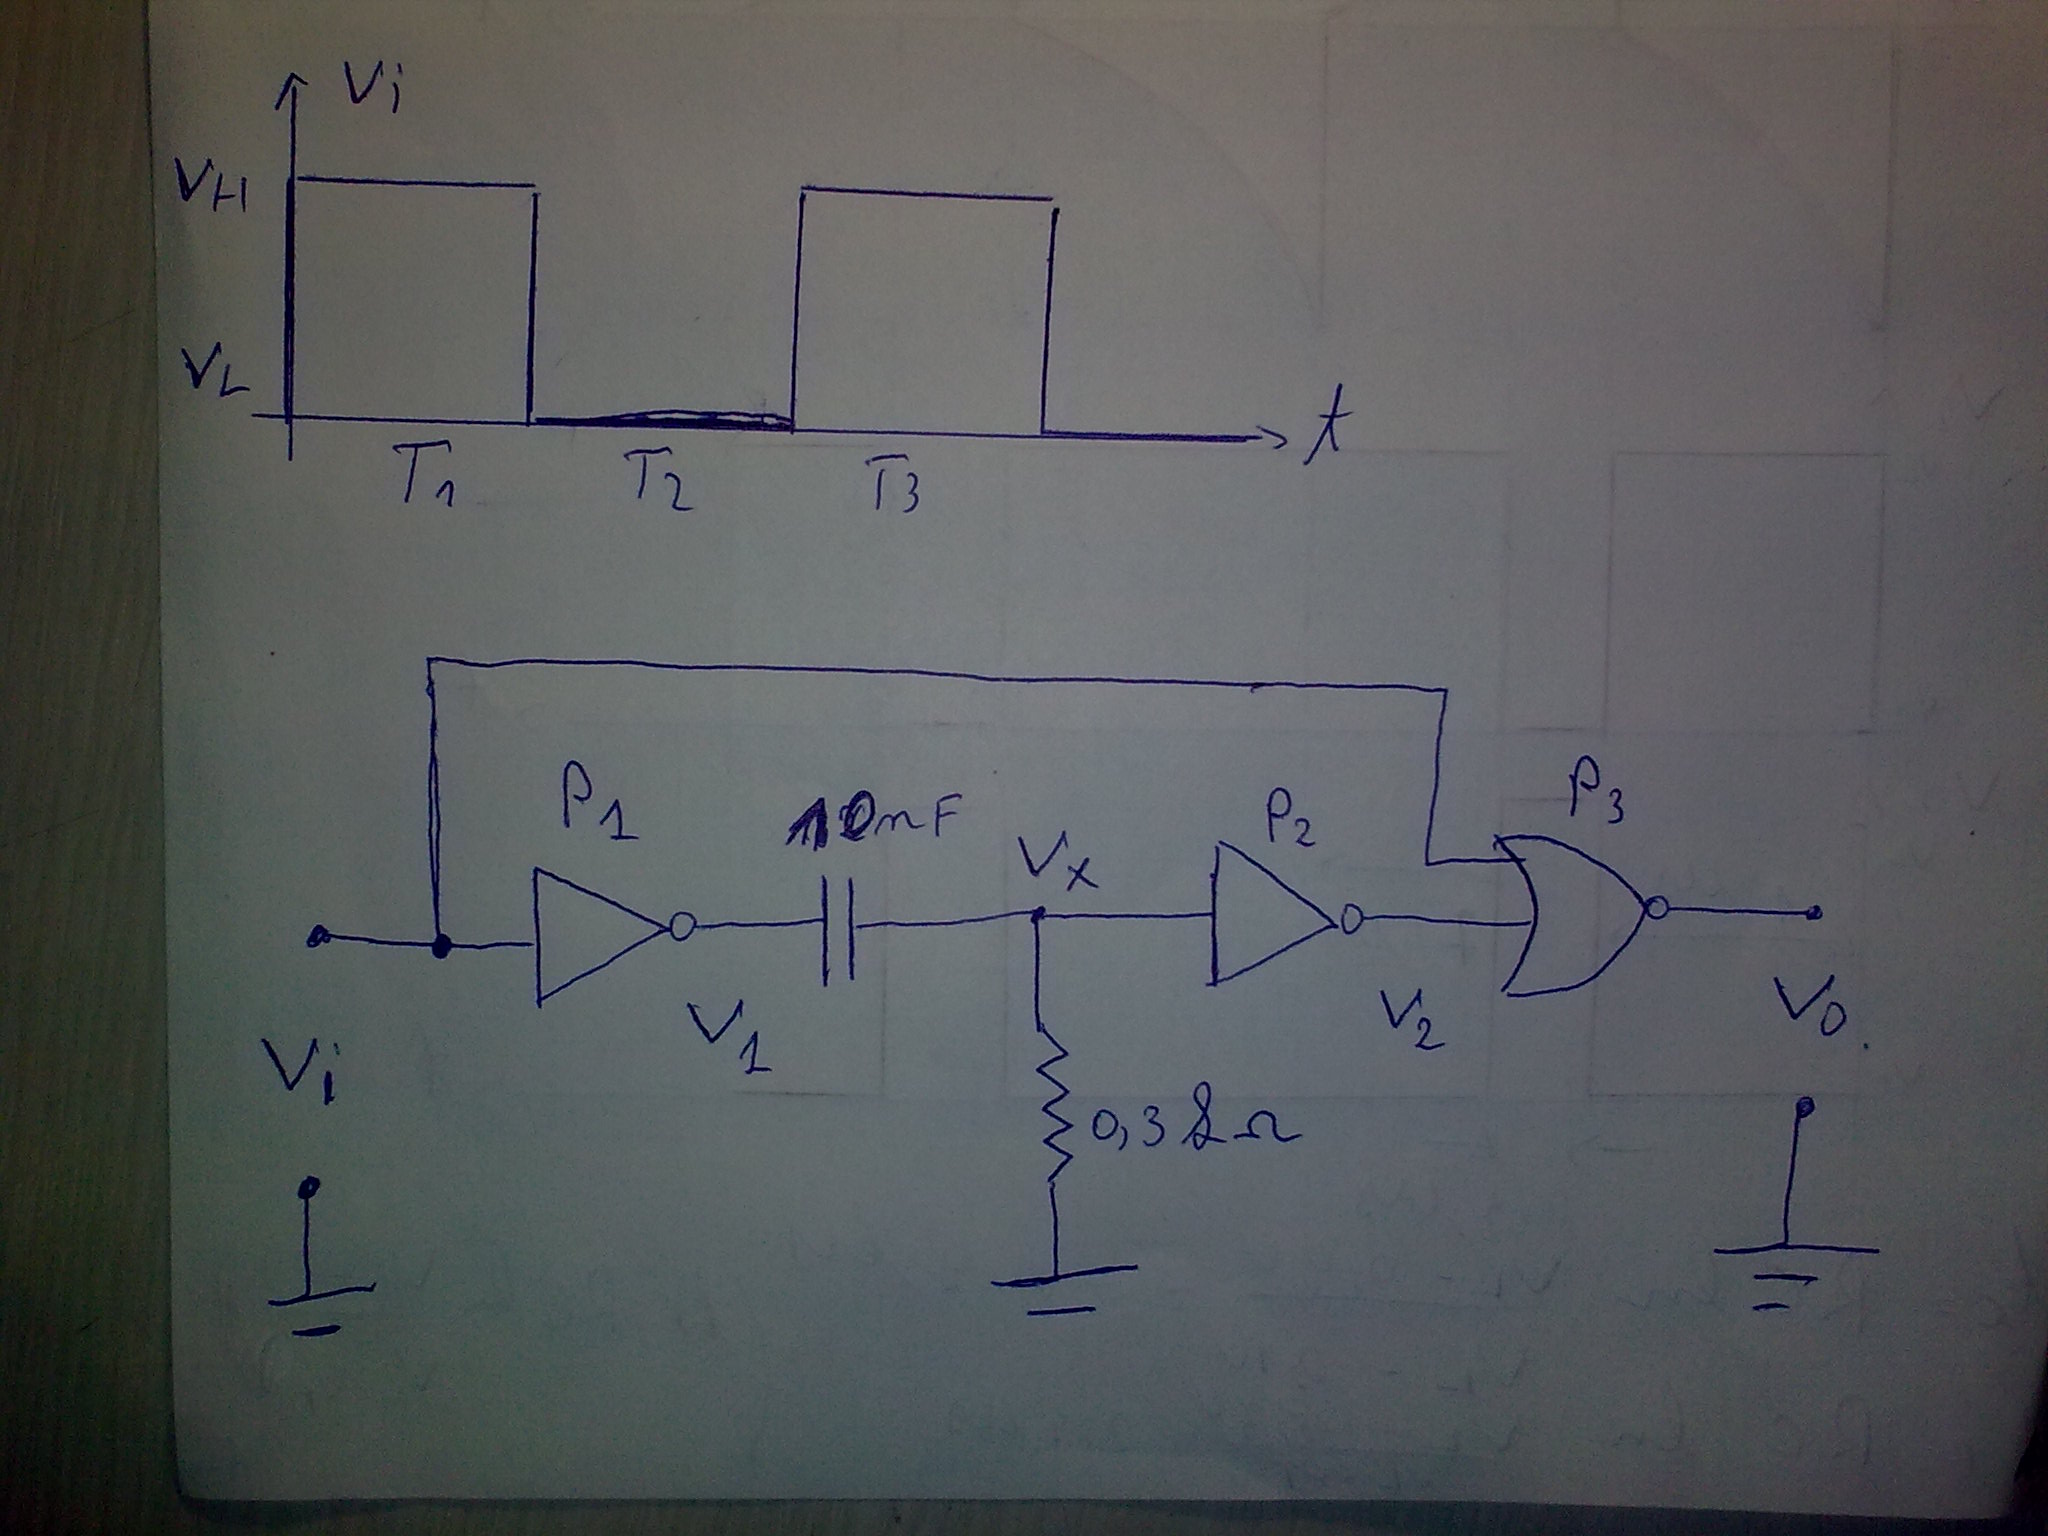 Vi
VH
VL
t
T1
T2
T3
P1
10nF
Vx
P2
P3
V1
V2
V0.
Vi
0,3kΩ